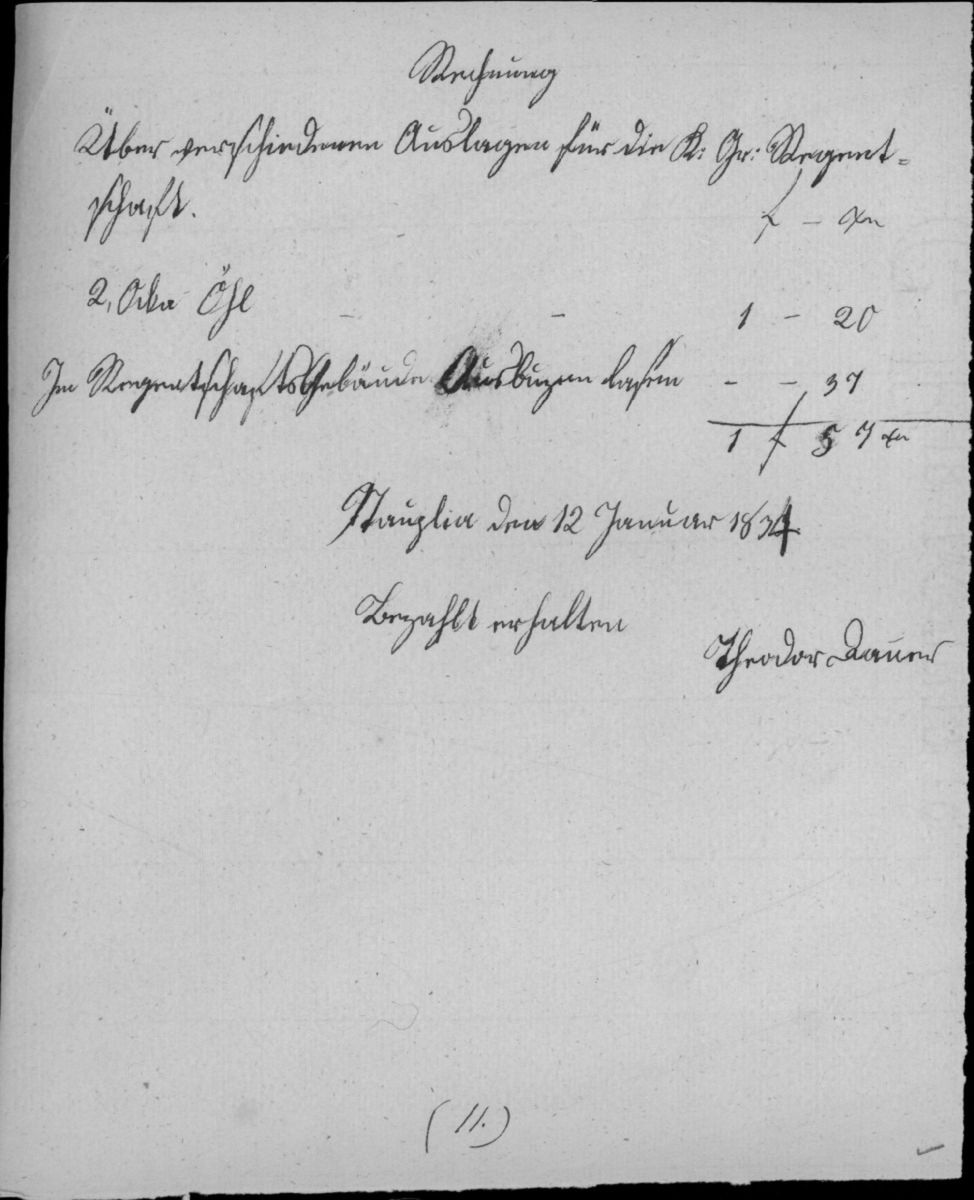 Rechnung
Über verschiedenen Auslagen für die K: Gr: Regent=
schaft.
f – xr
2, Ocka Öhl – – 1 – 20
Im Regentschafts Gebäude Ausbuzen lasen – – 37
1 f 57 xr
Nauplia den 12 Januar 1834
Bezahlt erhalten
Theodor Dauer
(11.)